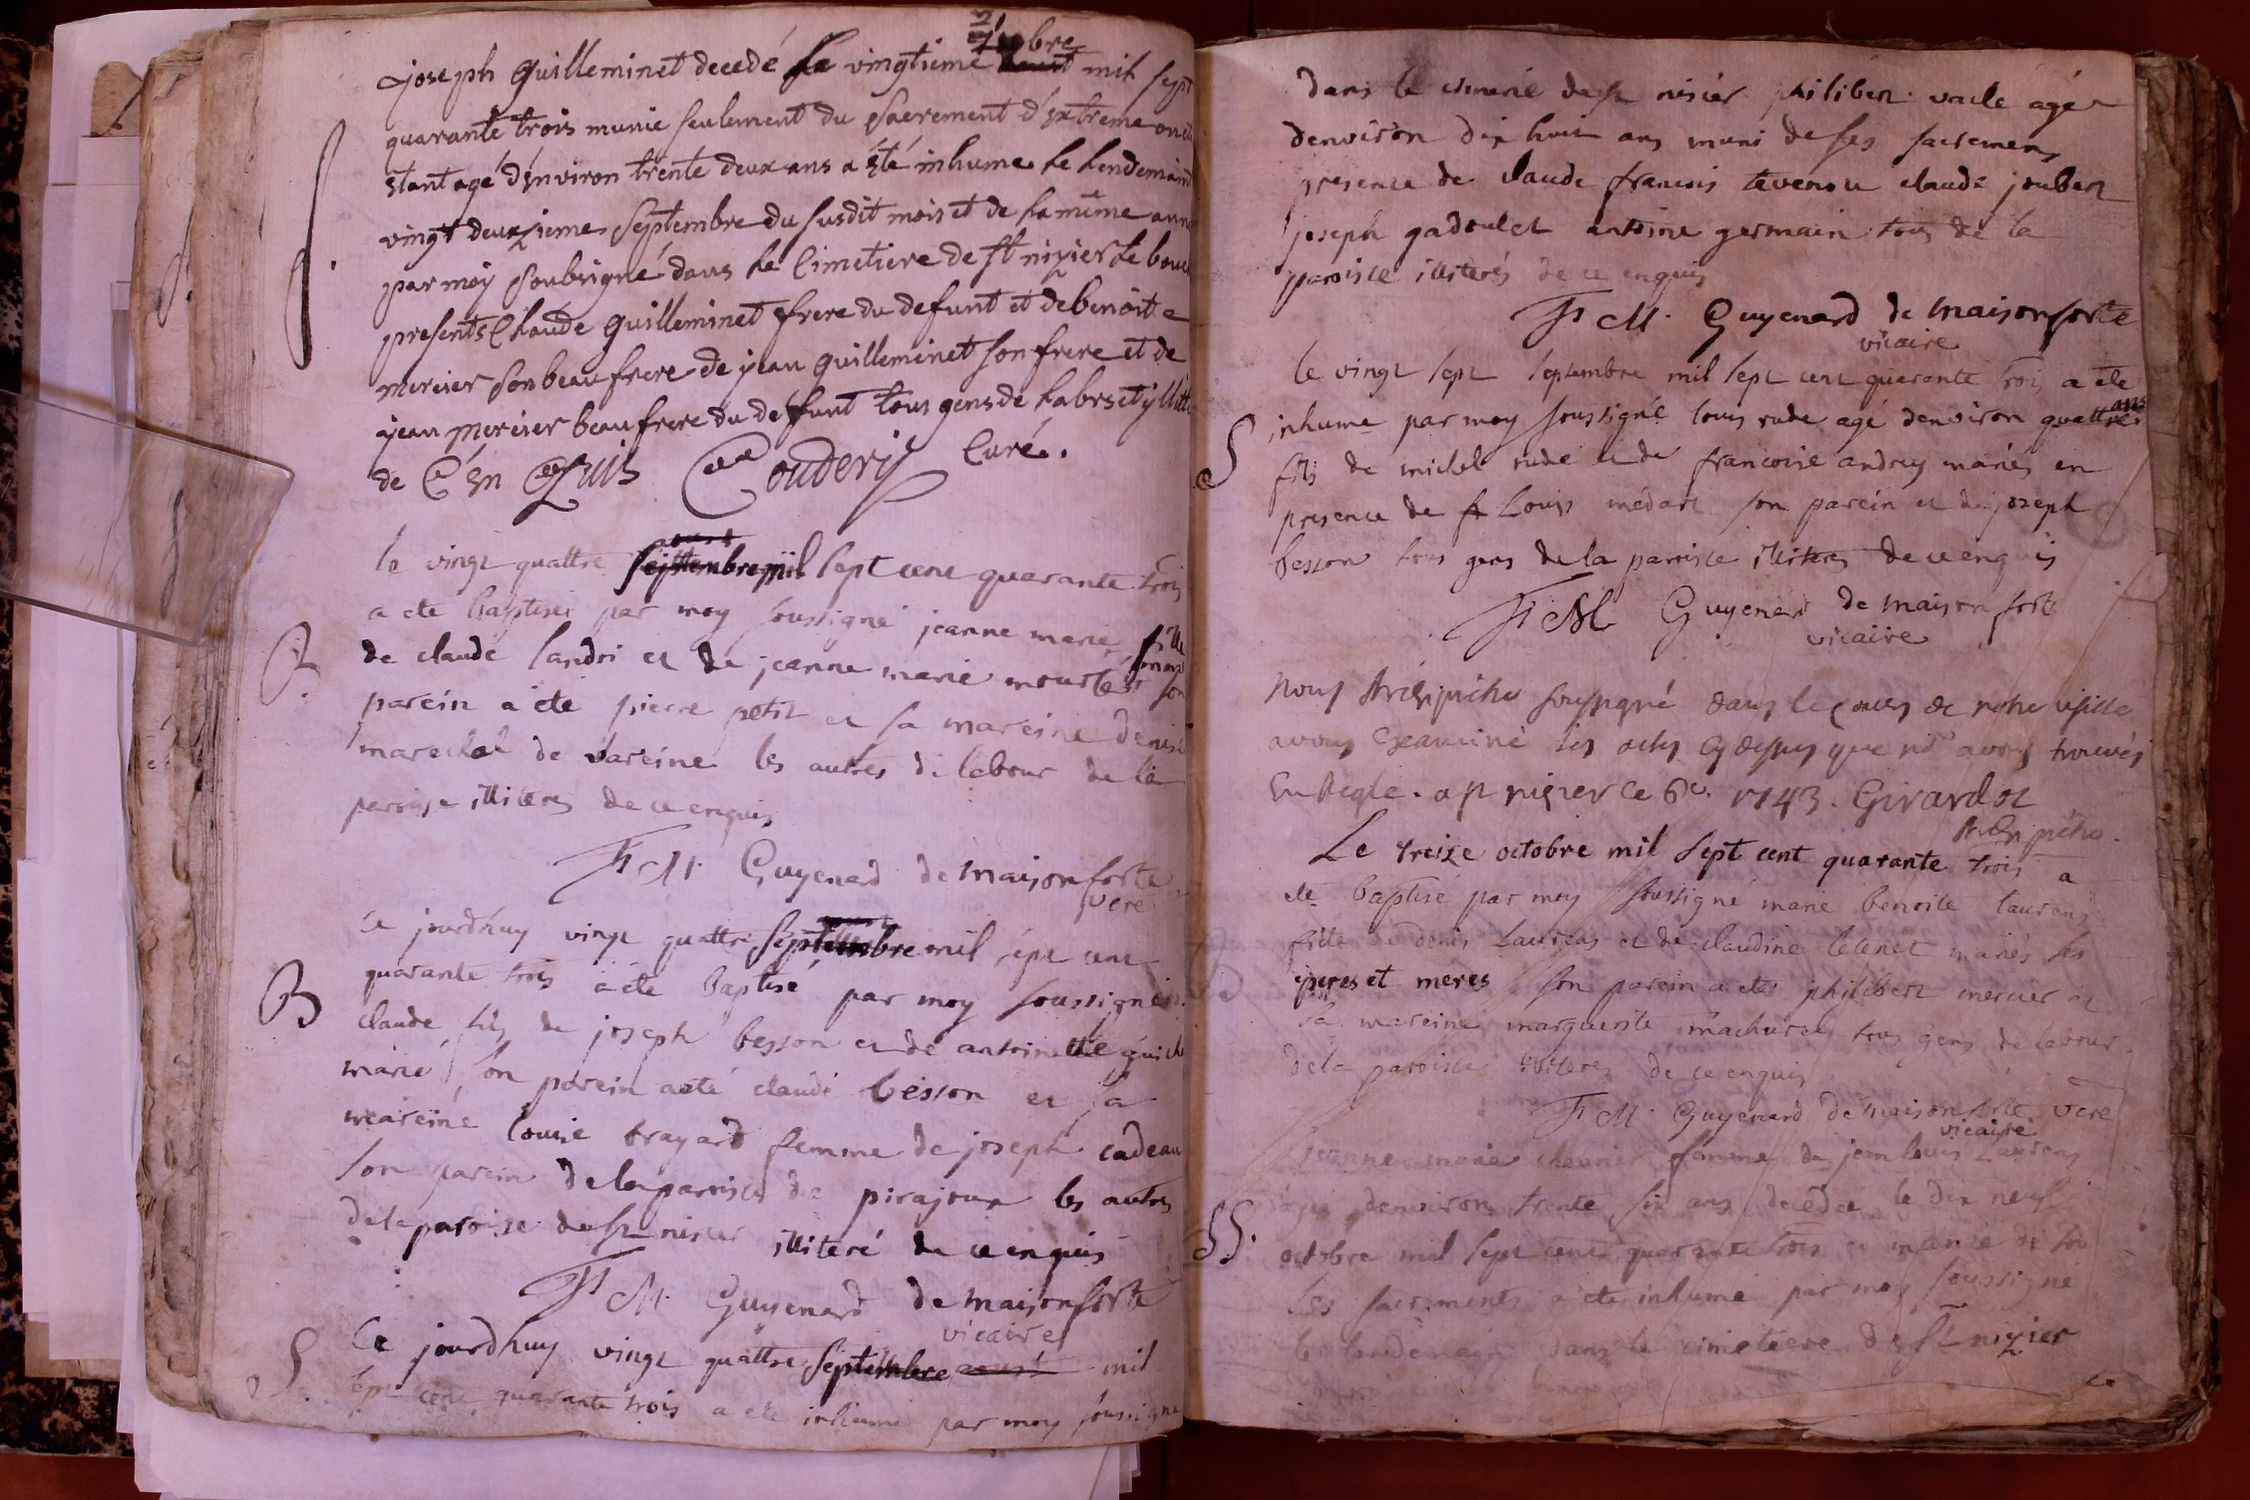 joseph Guilleminet decedé le vingtieme 7bre aout mil sept
quarante trois munie seulement du Sacrement d'extreme onct
etant agé d'environ trente deux ans a été inhume le lendemain
vingt deuxieme Septembre du susdit mois et de la même ann
par moy Soubsigné dans le Cimetiere de st nizier le bouc
presents Claude Guilleminet frere du defunt et de benoit
mercier son beau frere de jean Guilleminet son frere et de
jean mercier beau frere du defunt tous gens de
de C'en Quis Couderis Curé.
le vingt quattre aoust Septembre mil sept cent quarante trois
a ete Baptisé par moy soussigné jeanne marie fille
B
de claude landri et de jeanne marie son
parein a été pierre petit et sa mareine denise
marechal de vareine les autres de labour de la
paroisse illiteres de ce enquis
F M. Guyenard de maisonforte
vere
ce jourdhuy vingt quattre Septembre mil sept cent
quarante trois a été Baptisé par moy soussigné
B
claude fils de joseph besson et de antoinette
marié son parein a eté claude besson et sa
mareine louise brayard femme de joseph cadeau
son parein de la paroisse de pirajoux les autres
de la paroisse de st nisier illiteré de ce enquis
F M. Guyenard de maisonforte
vicaire
S.
Ce jourdhuy vingt quattre Septembre aoust mil
sept cent quarante trois a ete inhumé par moy soussigné
dans le cimetié de st nisier philibert vacle agé
denviron dix huit ans muni de ses sacremens
presence de claude francois tevenou claude joubert
joseph gadoulet antoine germain tous de la
paroisse illiterés de ce enquis
F M. Guyenard de maisonforte
vicaire
le vingt sept septembre mil sept cent quarante trois a ete
S
inhume par moy soussigné louis rude agé denviron quattre ans
fils de michel rude et de francoise andrey mariés en
presence de Louis médart son parein et de jozeph
besson tous gens de la paroisse illiteres de ce enquis
F M Guyenard de maison forte
vicaire
nous Archiprêtre soussigné dans le cours de notre visitte
avons Examiné les actes cy dessus que ns avons trouvés
En Regle. a st nizier ce 6e. 1743. Girardot
Archiprêtre.
Le treize octobre mil sept cent quarante trois a
ete Baptisé par moy soussigné marie benoite laurens
fille de denis Laurens et de claudine tetenet mariés ses
peres et meres son parein a ete philibert mercier et
sa mareine marguerite machurat tous gens de labour
de la paroisse illiteres de ce enquis
F M. Guyenard de maisonforte vere
vicaire
jeanne marie chevrier femme de jean louis Laurens
agee denviron trente six ans decedee le dix neuf
SS.
octobre mil sept cent quarante trois et munie de
ses sacrements a ete inhumé par moy soussigné
le lendemain dans le cimetiere de St nizier